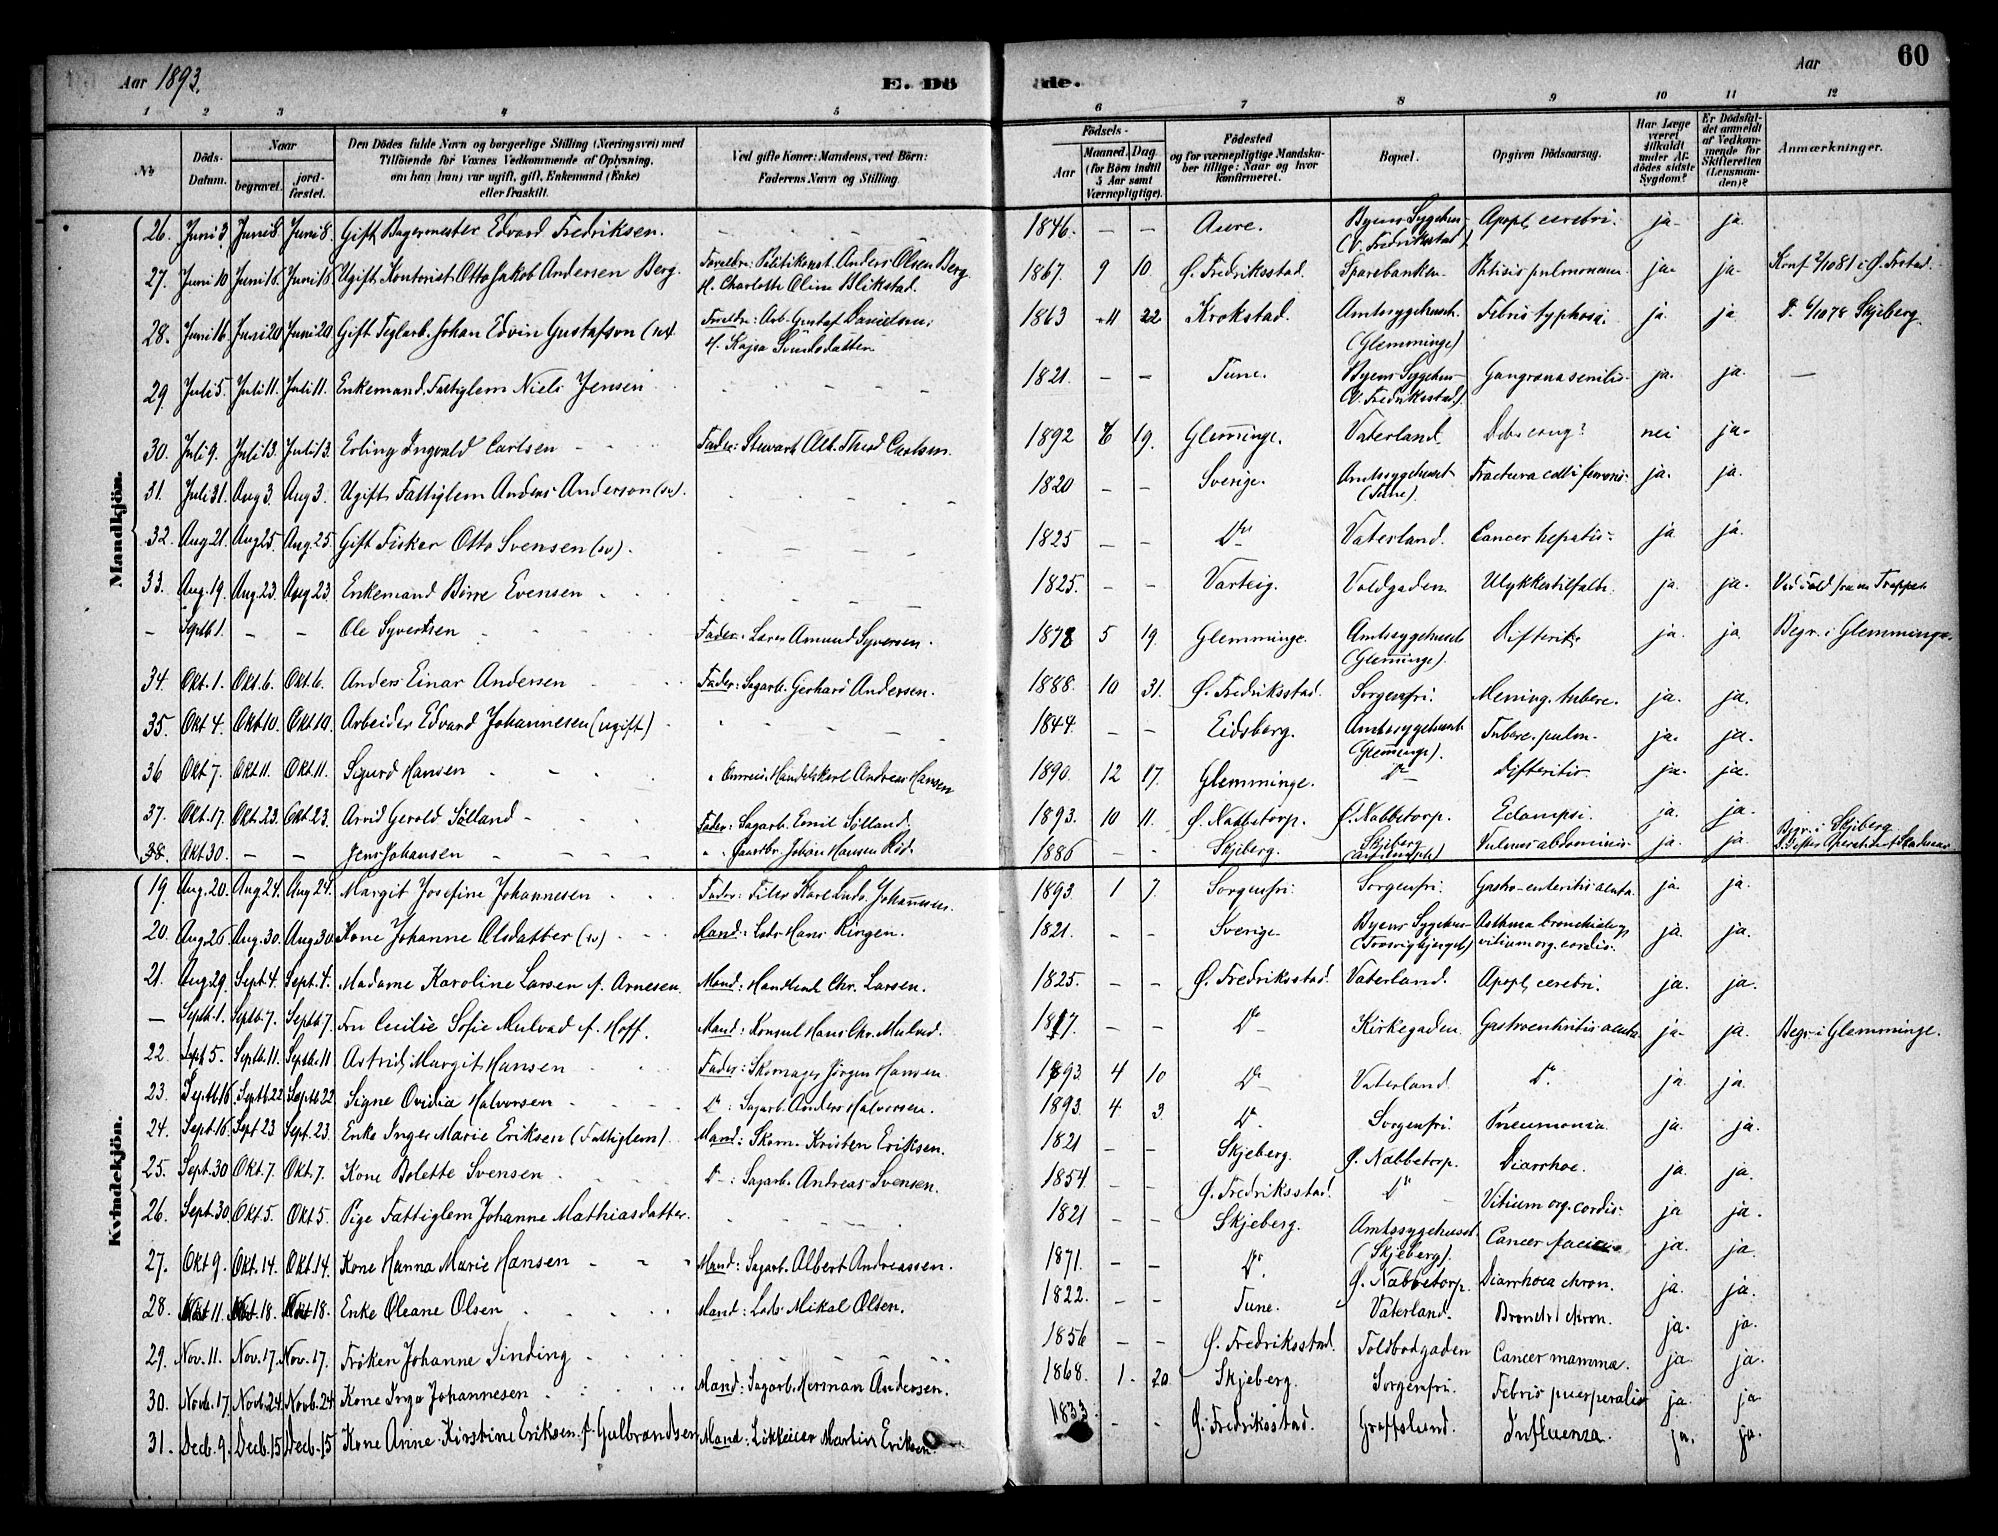 Aar 1893.
E. Dö
de.
Aar
60
1 2 3 4 5 6 7 8 9 10 11 12
No
Döds-Datum.
Naar
begravet.
jord-fæstet.
Den Dödes fulde Navn og borgerlige Stilling (Næringsvei) med
Tilföiende for Voxnes Vedkommende af Oplysning,
om han (hun) var ugift, gift, Enkemand (Enke)
eller fraskilt.
Ved gifte Koner: Mandens, ved Börn:
Faderens Navn og Stilling.
Födsels-
Aar
Maaned. Dag
(for Börn indtil
5 Aar samt
Værnepligtige).
Födested
og for værnepligtige Mandska-
ber tillige: Naar og hvor
konfirmeret.
Bopæl.
Opgiven Dödsaarsag.
Har Læge
været
tilkaldt
under Af-
dödes sidste
Sygdom?
Er Dödsfal-
det anmeldt
af Vedkom-
mende for
Skifteretten
(Lensman-
den)?
Anmærkninger.
Mandkjön.
26. Juni 3 Juni 8 Juni 8. Gift Bagermester Edvard Fredriksen. 1846. – – Aure. Byens Sygehus (V. Fredriksstad) Apopl. cerebri. ja ja
27. Juni 10 Juni 16 Juni 16 Ugift Kontorist Otto Jakob Andersen Berg. Forældre: Politikonst. Anders Olsen Berg H. Charlotte Oline Blikstad. 1867. 9 10. Ø. Fredriksstad. Sparebanken Phtisis pulmonum ja ja Konf. 2/10 81 i Ø. Frstad.
28. Juni 16 Juni 20 Juni 20 Gift Teglarb. Johan Edvin Gustafson Forældre: Arb. Gustaf Davidson, H. Kajsa 1863 11 22 Krokstad. Amtssygehuset (Glemminge) Febris typhosa. ja ja D. 6/10 78 Skjeberg.
29. Juli 5 Juli 11. Juli 11. Enkemand. Fattiglem Niels Jensen 1821. – – Tune. Byens Sygehus (V. Fredriksstad) Gangræna senilis. ja. ja. –
30. Juli 9. Juli 13. Juli 13. Erling Ingvald Carlsen Fader: Stuvarb. Alb. Carlsen. 1892 6 19. Glemminge. Vaterland nei ja
31. Juli 31. Aug 3 Aug 3. Ugift Fattiglem Anders Anderson (sv). 1820 – – Sverige. Amtssygehuset (Tune) Fractura colli femoris. ja. ja
32. Aug 21. Aug 25 Aug 25 Gift Fisker Otto Svensen (sv). 1825 – – Do Vaterland. Cancer hepatis. ja ja.
33. Aug. 19. Aug. 23. Aug 23. Enkemand Börre Evensen 1825. – – Varteig. Voldgaden. Ulykkestilfælde. ja. ja. Ved Fald fra en Trappe
– Septb 1. – – Ole Syvertsen Fader: Amund Syversen. 1878 5 19. Glemminge. Amtssygehuset (Glemminge). Difterit ja. ja Begr. i Glemminge.
34. Okt. 1. Okt. 6. Okt. 6. Anders Einar Andersen Fader: Sagarb. Gerhard Andersen. 1888. 10 31. Ø. Fredriksstad. Sorgenfri. Mening. tuberc. ja. ja.
35. Okt 4. Okt 10. Okt 10. Arbeider Edvard Johannesen (ugift) 1844. – – Eidsberg. Amtssygehuset (Glemminge). Tuberc. pulm. ja. ja.
36 Okt 7. Okt 11. Okt. 11. Sigurd Hansen Handelskarl Andreas Hansen 1890. 12 17. Glemminge. Do Difteritis ja. ja.
37. Okt. 17. Okt. 23. Okt. 23. Arvid Gerold Sölland Fader: Sagarb. Emil Sölland. 1893. 10 11. Ø. Nabbetorp. Ø. Nabbetorp. Eclampsi. ja. ja.
38. Okt 30. – – Jens Johansen Gaardbr. Johan Hansen Röd. 1886 – – Skjeberg. Skjeberg Vulnus abdominis ja. ja. Begr. i Skjeberg
Kvindekjön.
19. Aug. 20. Aug 24. Aug 24. Margit Josefine Johannesen Fader: Filer Karl Ludv. Johannesen. 1893 1 7. Sorgenfri. Sorgenfri. Gastro-enteritis acuta. ja. ja.
20. Aug 26. Aug. 30. Aug 30. Kone Johanne Olsdatter (sv) Mand: Lods Hans Ringen. 1821. – – Sverige. Byens Sygehus Asthma bronchiale vitium org. cordis. ja. ja.
21. Aug 29 Sept 4. Sept. 4. Madame Karoline Larsen f. Arnesen. Mand: Handlende Chr. Larsen. 1825. – – Ø. Fredriksstad. Vaterland. Apopl. cerebri. ja. ja.
– Septb. 1. Septb 7. Septb 7. Fru Cecilie Sofie Mulvad f. Hoff. Mand: Konsul Hans Chr. Mulvad. 1817. – – Do Kirkegaden. Gastroenteritis acuta ja ja. Begr. i Glemminge.
22. Sept 5. Septb. 11. Septb 11 Astrid Margit Hansen Fader: Skomager Jörgen Hansen 1893. 4 10 Do Vaterland. Do. ja ja.
23. Septb 16. Septb 22 Septb 22 Signe Ovidia Halvorsen Do: Sagarb. Anders Halvorsen. 1893. 4 3 Do Sorgenfri. Pneumonia. ja. ja.
24. Septb. 16. Sept 23 Sept. 23. Enke Inger Marie Eriksen (Fattiglem). Mand: Skom. Kristen Eriksen. 1821 – – Skjeberg. Ø. Nabbetorp. Diarrhoe. ja. ja.
25. Sept. 30 Okt. 7. Okt. 7. Kone Bolette Svensen Do: Sagarb. Andreas Svensen. 1854. – – Ø. Fredriksstad. Do Vitium org. cordis. ja ja.
26. Sept. 30 Okt 5. Okt 5. Pige Fattiglem Johanne Mathiasdatter. 1821 – – Skjeberg. Amtssygehuset (Skjeberg). Cancer faciei ja. ja.
27. Okt 9. Okt. 14. Okt 14. Kone Hanna Marie Hansen Mand: Sagarb. Albert Andreassen. 1871. – – Do. Ø. Nabbetorp. Diarrhoea chron. ja. ja.
28. Nov 11. Nov 18. Nov 18. Enke Oleane Olsen Mand: Lods Mikal Olsen. 1822. – – Tune. Vaterland. Bronch. chron. ja. ja.
29. Nov. 11. Nov. 17. Nov. 17. Fröken Johanne Sinding 1856 – – Ø. Fredriksstad. Toldbodgaden Cancer mamma. ja ja.
30. Novb. 17. Novb. 24. Novb. 24 Kone Inga Johannesen Mand: Sagarb. Herman Andersen. 1868. 1. 20. Skjeberg. Sorgenfri. Febris puerperalis ja. ja
31. Decb. 9. Decb. 15 Decb. 15 Kone Anne Kirstine Eriksen f Gulbrandsen Mand: Martin Eriksen. 1833. – – Ø. Fredriksstad. Influenza. ja. ja.